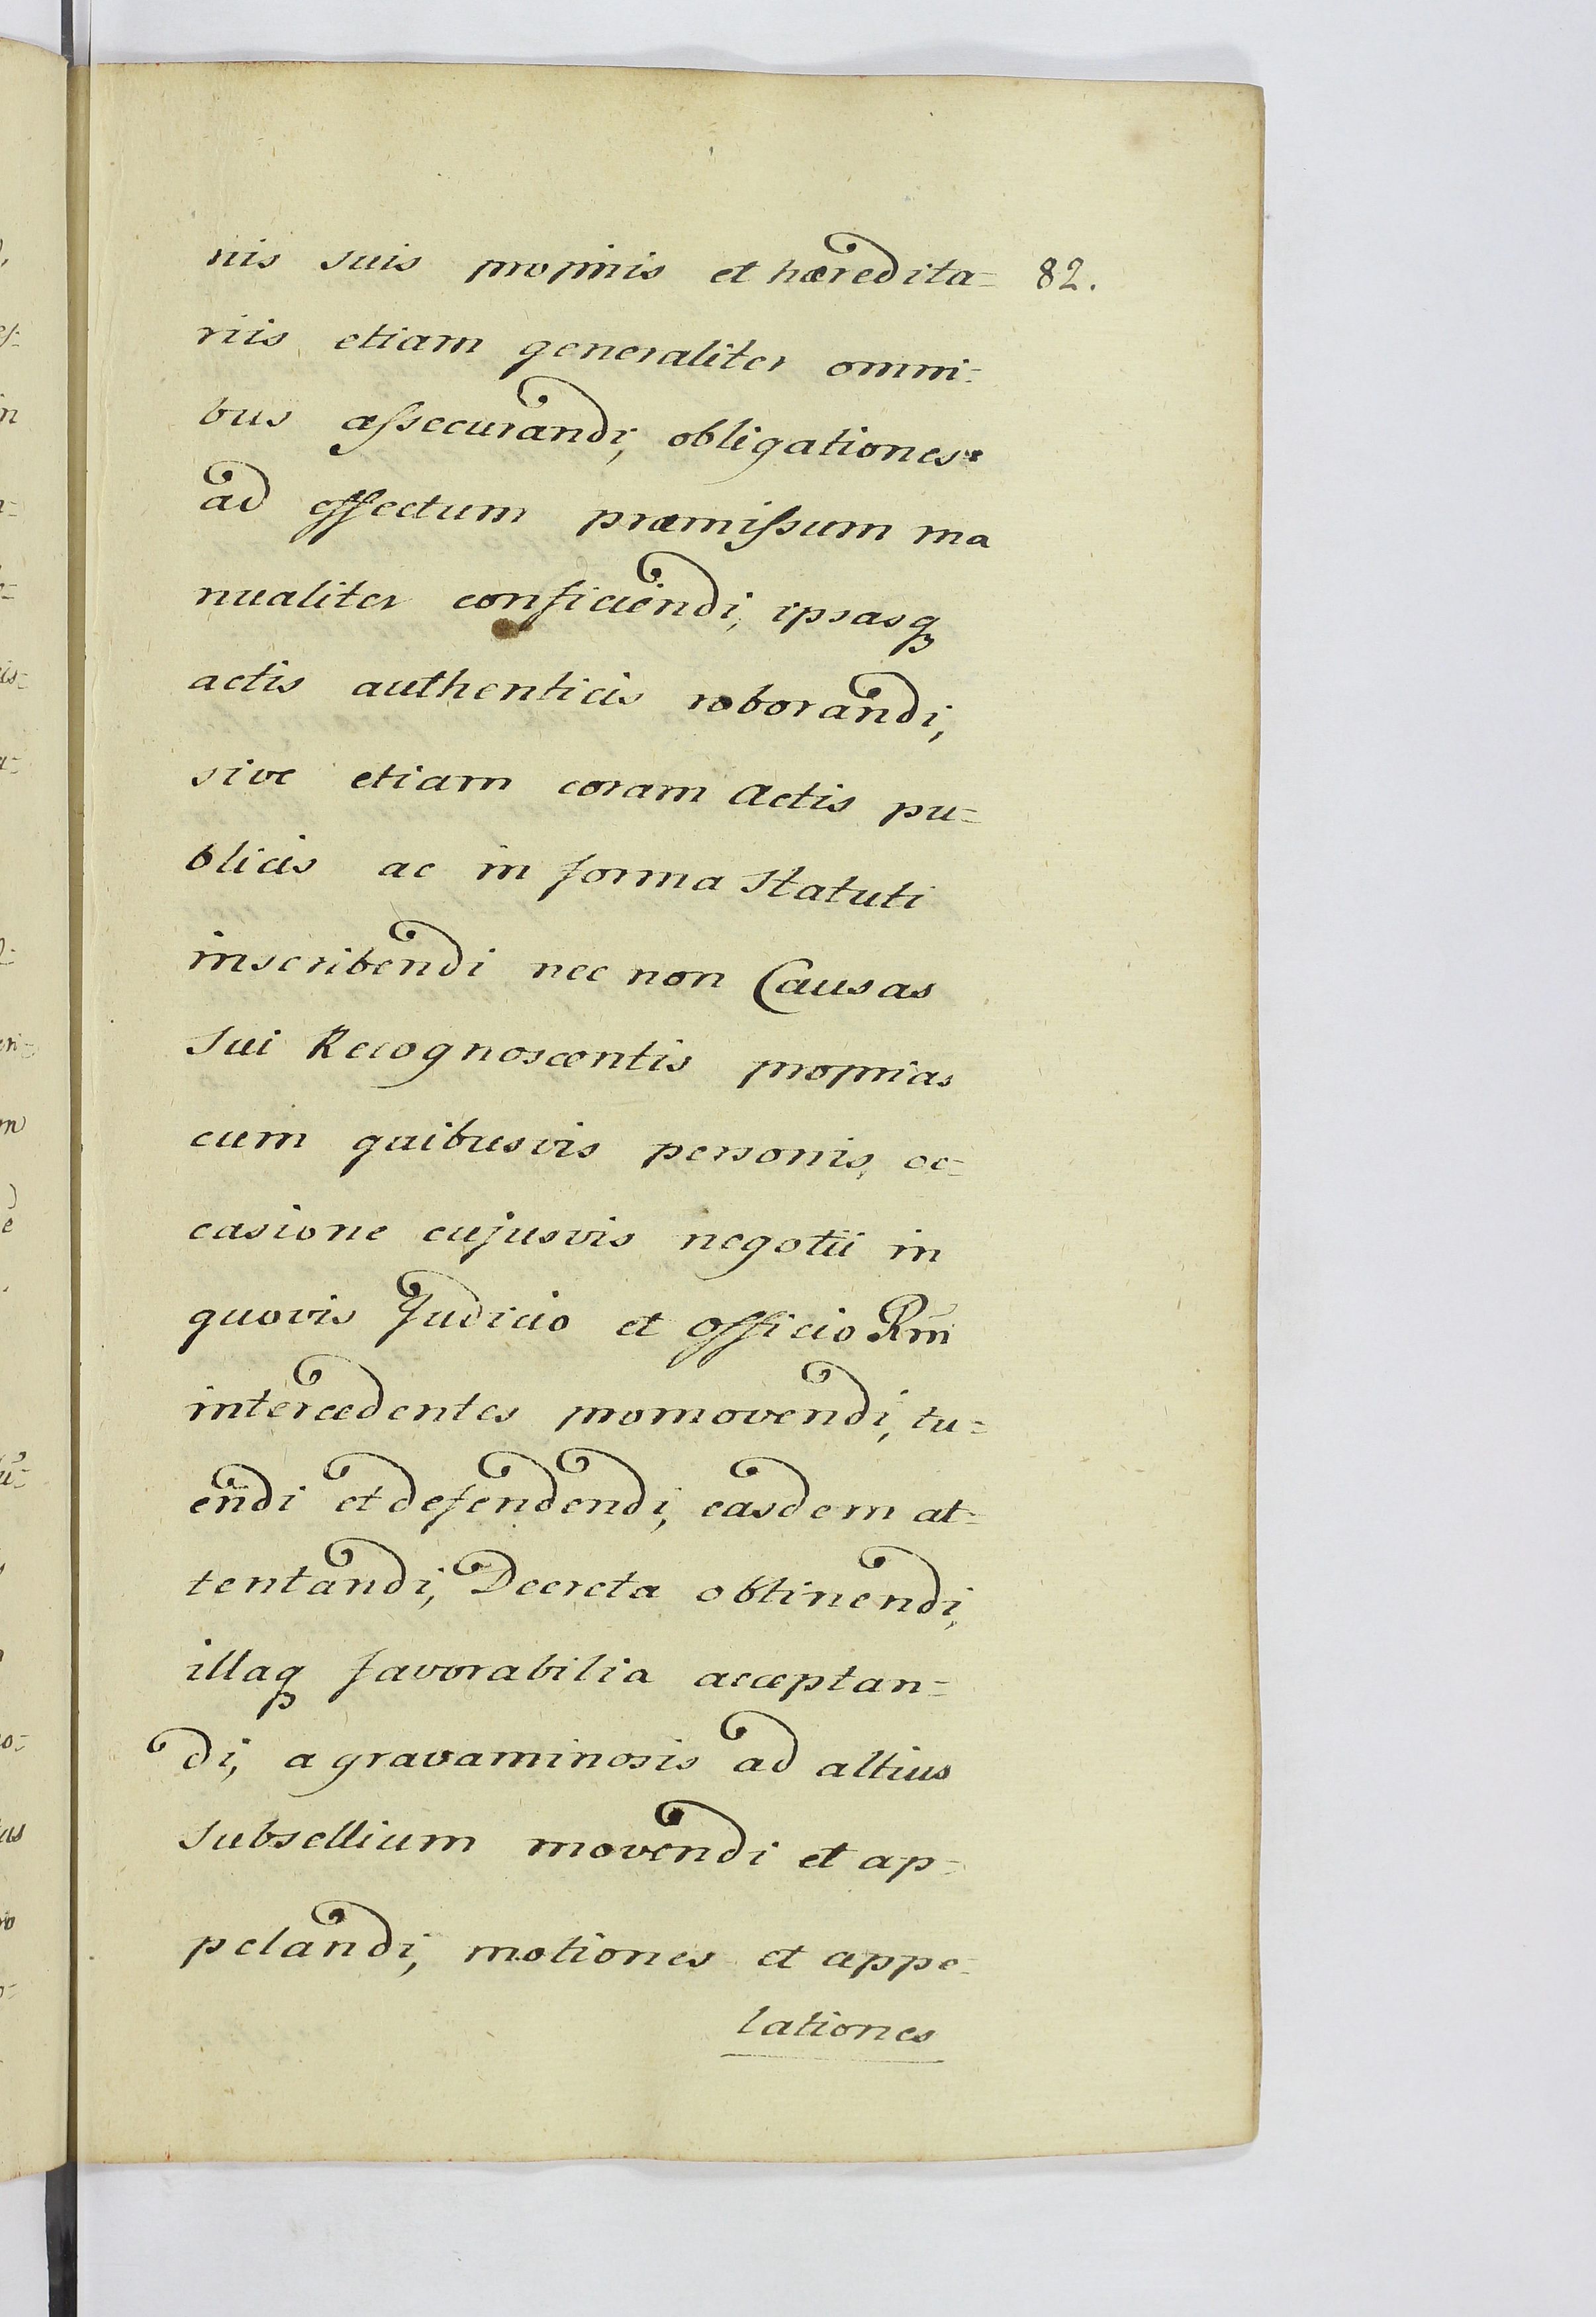 nis suis propriis et hæredita= 82.
riis etiam generaliter omni=
bus assecurandi, obligationes
ad effectum præmissum ma
nualiter conficiendi, ipsasq
actis authenticis roborandi,
sive etiam coram Actis pu=
blicis ac in forma Statuti
inscribendi nec non Causas
sui Recognoscentis proprias
cum quibusvis personis, oc=
casione cujusvis negotii in
quovis Judicio et officio Rni
intercedentes promovendi, tu=
endi et defendendi, easdem at=
tentandi, Decreta obtinendi,
illaq favorabilia acceptan=
di, a gravaminosis ad altius
Subsellium movendi et ap=
pelandi, motiones et appe=
lationes